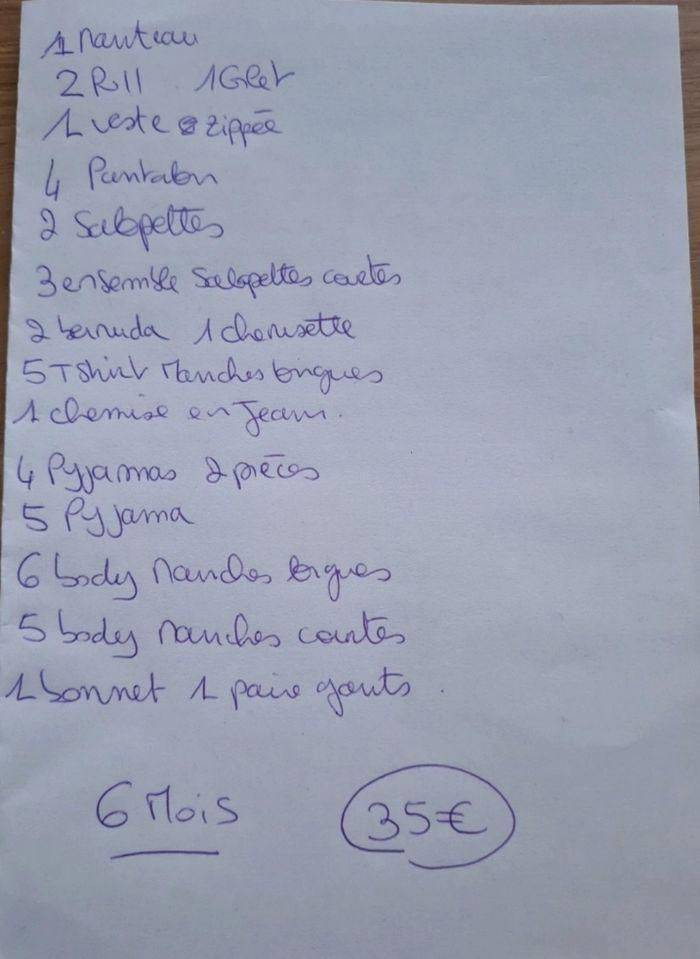 1 manteau
2 Pull 1 Gilet
1 veste zippée
4 Pantalon
2 Salopettes
3 ensemble Salopettes courtes
2 bermuda 1 chemisette
5 T Shirt Manches longues
1 chemise en Jean.
4 Pyjamas 2 pièces
5 Pyjama
6 body Manches longues
5 body manches courtes
1 bonnet 1 paire gants.
6 Mois 35€